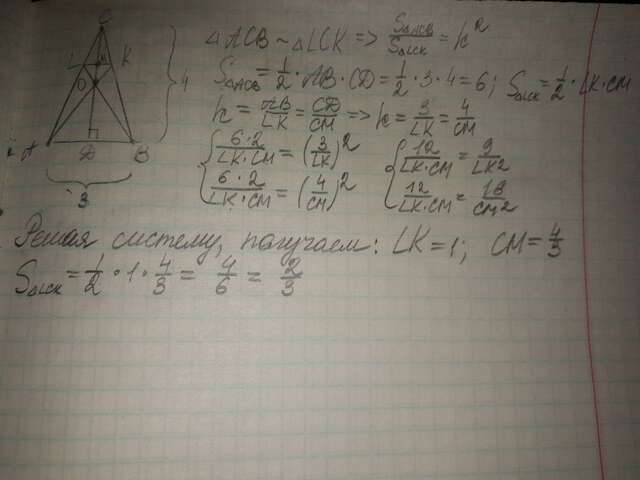 C
L
M
K
O
4
A
D
B
3
△ACB ~ △LCK => S△ACB/S△LCK = k²
S△ACB = 1/2 · AB · CD = 1/2 · 3 · 4 = 6; S△LCK = 1/2 · LK · CM
k = AB/LK = CD/CM => k = 3/LK = 4/CM
{ 6·2/LK·CM = (3/LK)² { 12/LK·CM = 9/LK²
6·2/LK·CM = (4/CM)² 12/LK·CM = 16/CM²
Решая систему, получаем: LK = 1; CM = 4/3
S△LCK = 1/2 · 1 · 4/3 = 4/6 = 2/3